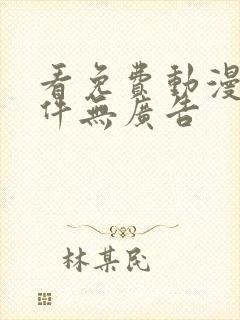 看免費動漫
件無廣告
林某民